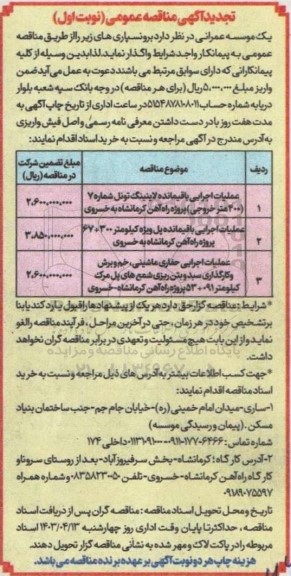 تجدید آگهی مناقصه عمومی (نوبت اول)
یک موسسه عمرانی در نظر دارد برونسپاری های زیر را از طریق مناقصه
عمومی به پیمانکار واجد شرایط واگذار نماید. لذا بدین وسیله از کلیه
پیمانکارانی که دارای سوابق مرتبط می باشند دعوت به عمل می آید ضمن
واریز مبلغ ۵.۰۰۰.۰۰۰ ریال (برای هر مناقصه) در وجه بانک سپه شعبه بلوار
دریا به شماره حساب در ساعت اداری از تاریخ چاپ آگهی به
مدت هفت روز با در دست داشتن معرفی نامه رسمی و اصل فیش واریزی
به آدرس مندرج در آگهی مراجعه و نسبت به خرید اسناد اقدام نمایند:
ردیف موضوع مناقصه مبلغ تضمین شرکت در مناقصه (ریال)
۱ عملیات اجرایی باقیمانده لاینینگ تونل شماره ۷
(۲۰۰ متر خروجی) پروژه راه آهن کرمانشاه به خسروی ۲.۶۰۰.۰۰۰.۰۰۰
۲ عملیات اجرایی باقیمانده پل ویژه کیلومتر ۳۰۰+۶۷
پروژه راه آهن کرمانشاه به خسروی ۳.۸۵۰.۰۰۰.۰۰۰
۳ عملیات اجرایی حفاری ماشینی، خم و برش
و کارگذاری سبد و بتن ریزی شمع های پل مرک
کیلومتر ۰۹۱+۵۳ پروژه راه آهن کرمانشاه به خسروی ۲.۶۰۰.۰۰۰.۰۰۰
*شرایط: مناقصه گزار حق دارد هر یک از پیشنهادها را قبول یا رد کند یا بنا
بر تشخیص خود در هر زمان، حتی در آخرین مراحل، فرآیند مناقصه را لغو
نماید و از این بابت هیچ مسئولیت و تعهدی در برابر مناقصه گران نخواهد
داشت.
*جهت کسب اطلاعات بیشتر به آدرس های ذیل مراجعه و نسبت به خرید
اسناد مناقصه اقدام نمایند:
۱-ساری-میدان امام خمینی (ره)-خیابان جام جم-جنب ساختمان بنیاد
مسکن. (پیمان و رسیدگی موسسه)
شماره تماس: داخلی ۱۷۴
۲-آدرس کارگاه: کرمانشاه-بخش سرفیروزآباد-بعد از روستای سرونو
کارگاه راه آهن کرمانشاه-خسروی-تلفن و شماره همراه
۰۹۱۸۹۰۷۵۵۹۷
تاریخ و محل تحویل اسناد مناقصه: مناقصه گران پس از دریافت اسناد
مناقصه، حداکثر تا پایان وقت اداری روز چهارشنبه ۱۴۰۳/۰۴/۱۳ اسناد
مربوطه را در پاکت لاک و مهر شده به نشانی مناقصه گزار تحویل دهند.
هزینه چاپ هر دو نوبت آگهی بر عهده برنده مناقصه می باشد.